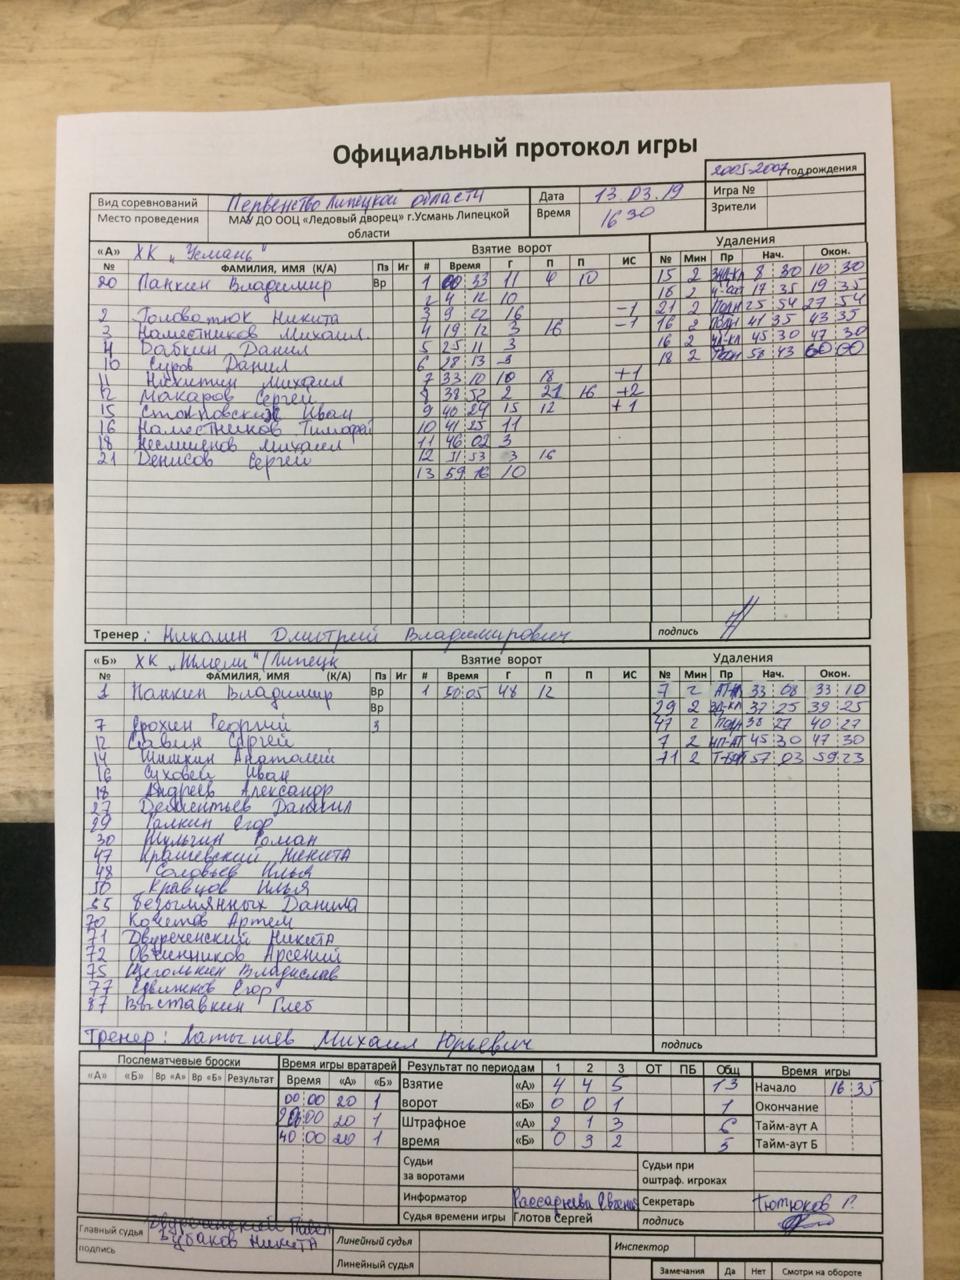 Официальный протокол игры
2005-2007 год рождения
Вид соревнований Первенство Липецкой области Дата 13.03.19 Игра №
Место проведения МАУ ДО ООЦ «Ледовый дворец» г.Усмань Липецкой области Время 16 30 Зрители
«А» ХК „Усмань" Взятие ворот Удаления
№ ФАМИЛИЯ, ИМЯ (К/А) Пз Иг # Время Г П П ИС № Мин Пр Нач. Окон.
20 Панкин Владимир Вр 1 00 33 11 4 10 15 2 8 30 10 30
2 4 12 10 18 2 17 35 19 35
2 Головатюк Никита 3 9 22 16 -1 21 2 25 54 27 54
3 Наместников Михаил 4 19 12 3 16 -1 16 2 41 35 43 35
4 Бабкин Данил 5 25 11 3 16 2 45 30 47 30
10 Суров Данил 6 28 13 3 18 2 58 43 60 00
11 Никитин Михаил 7 33 10 10 18 +1
12 Макаров Сергей 8 38 52 2 21 16 +2
15 Иван 9 40 24 15 12 +1
16 Наместников Тимофей 10 41 25 11
18 Несмиянов Михаил 11 46 02 3
21 Денисов Сергей 12 51 53 3 16
13 59 16 10
Тренер: Николин Дмитрий Владимирович подпись
«Б» ХК /Липецк Взятие ворот Удаления
№ ФАМИЛИЯ, ИМЯ (К/А) Пз Иг # Время Г П П ИС № Мин Пр Нач. Окон.
1 Панкин Владимир Вр 1 50 05 48 12 7 2 33 08 33 10
Вр 29 2 37 25 39 25
7 Ерохин Георгий З 47 2 38 27 40 27
12 Славин Сергей 7 2 45 30 47 30
14 Шишкин Анатолий 71 2 57 03 59 23
16 Суховей Иван
18 Андреев Александр
27 Дементьев Даниил
29 Галкин Егор
30 Шульгин Роман
47 Крашевский Никита
48 Соловьев Илья
50 Кравцов Илья
55 Безымянных Данила
70 Кочетов Артем
71 Двуреченский Никита
72 Овчинников Арсений
75 Щеголькин Владислав
77 Егор
87 Выставкин Глеб
Тренер: Латышев Михаил Юрьевич подпись
Послематчевые броски Время игры вратарей Результат по периодам 1 2 3 ОТ ПБ Общ Время игры
«А» «Б» Вр «А» Вр «Б» Результат Время «А» «Б» Взятие ворот «А» 4 4 5 13 Начало 16 35
00 00 20 1 «Б» 0 0 1 1 Окончание
20 00 20 1 Штрафное время «А» 2 1 3 6 Тайм-аут А
40 00 20 1 «Б» 0 3 2 5 Тайм-аут Б
Судьи за воротами Судьи при оштраф. игроках
Информатор Секретарь Тютюков Г.
Судья времени игры Глотов Сергей подпись
Главный судья Двуреченский Павел Линейный судья Инспектор
подпись Зубаков Никита Линейный судья
Замечания Да Нет Смотри на обороте